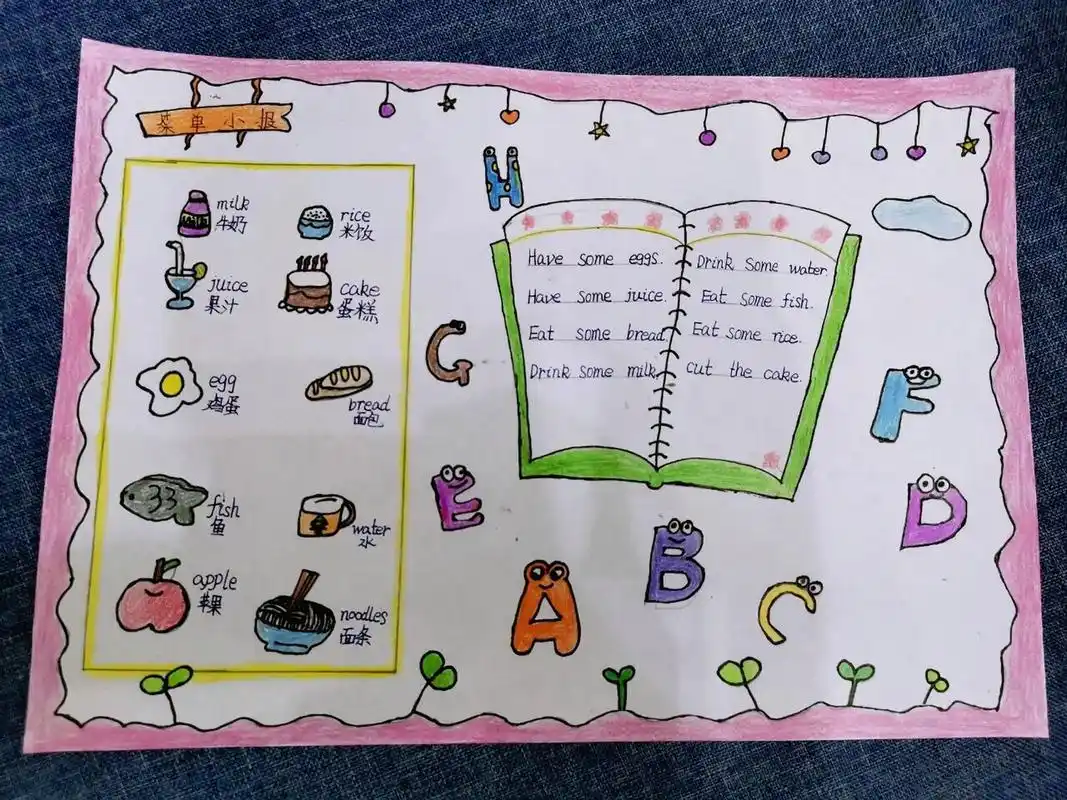 菜单小报
milk
牛奶
rice
米饭
juice
果汁
cake
蛋糕
egg
鸡蛋
bread
面包
fish
鱼
water
水
apple
苹果
noodles
面条
H
Have some eggs.
Have some juice.
Eat some bread.
Drink some milk.
Drink some water.
Eat some fish.
Eat some rice.
cut the cake.
G
F
E
D
A
B
C